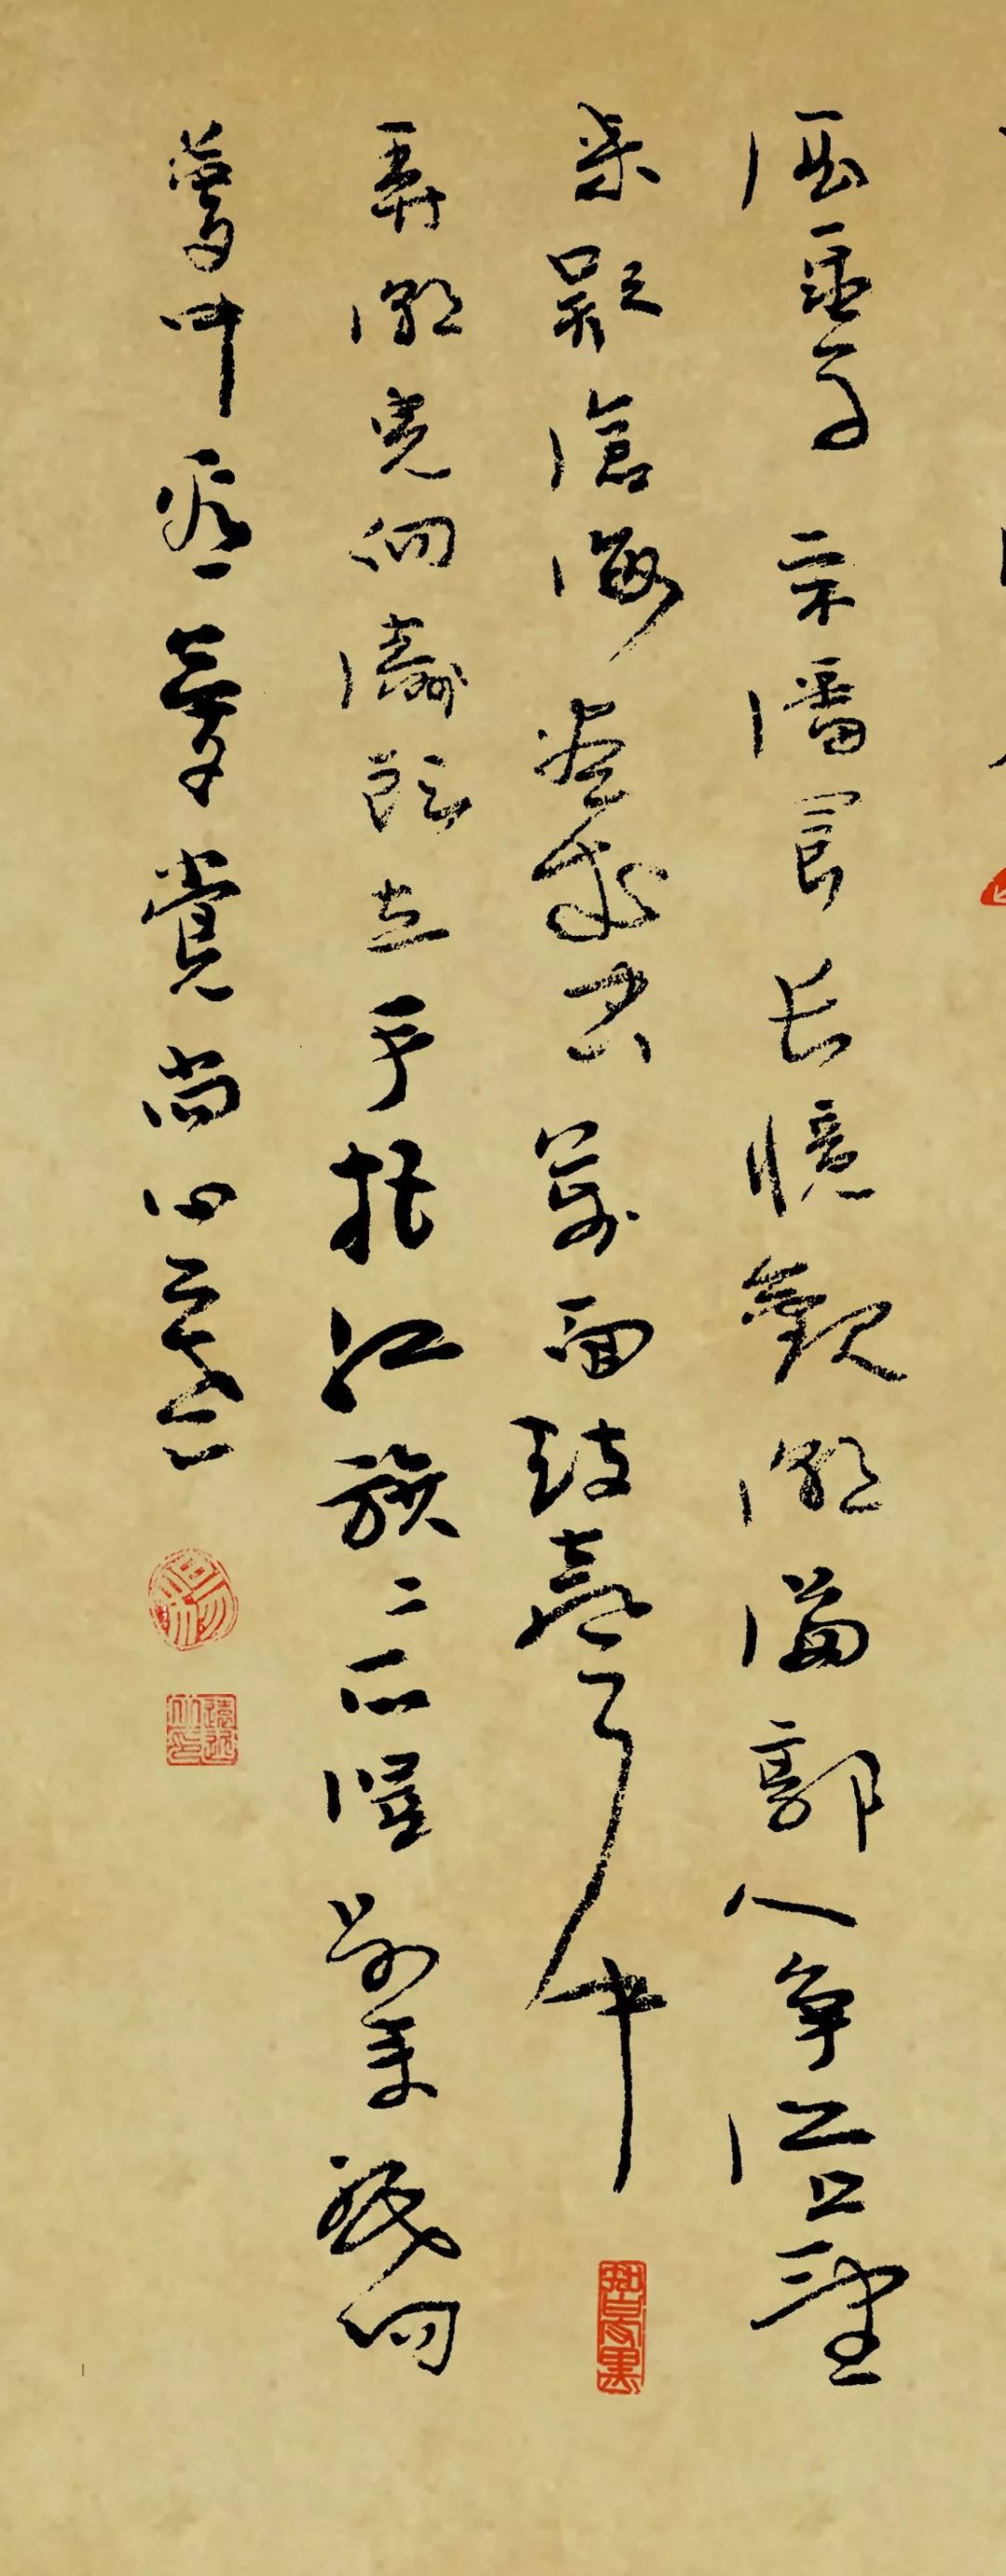 酒泉子 宋潘阆 长忆觀潮滿郭人争江上望
来疑滄海盡成空萬面鼓聲中
弄潮兒向濤頭立手把红旗旗不濕别来幾向
夢中看夢覺尚心寒